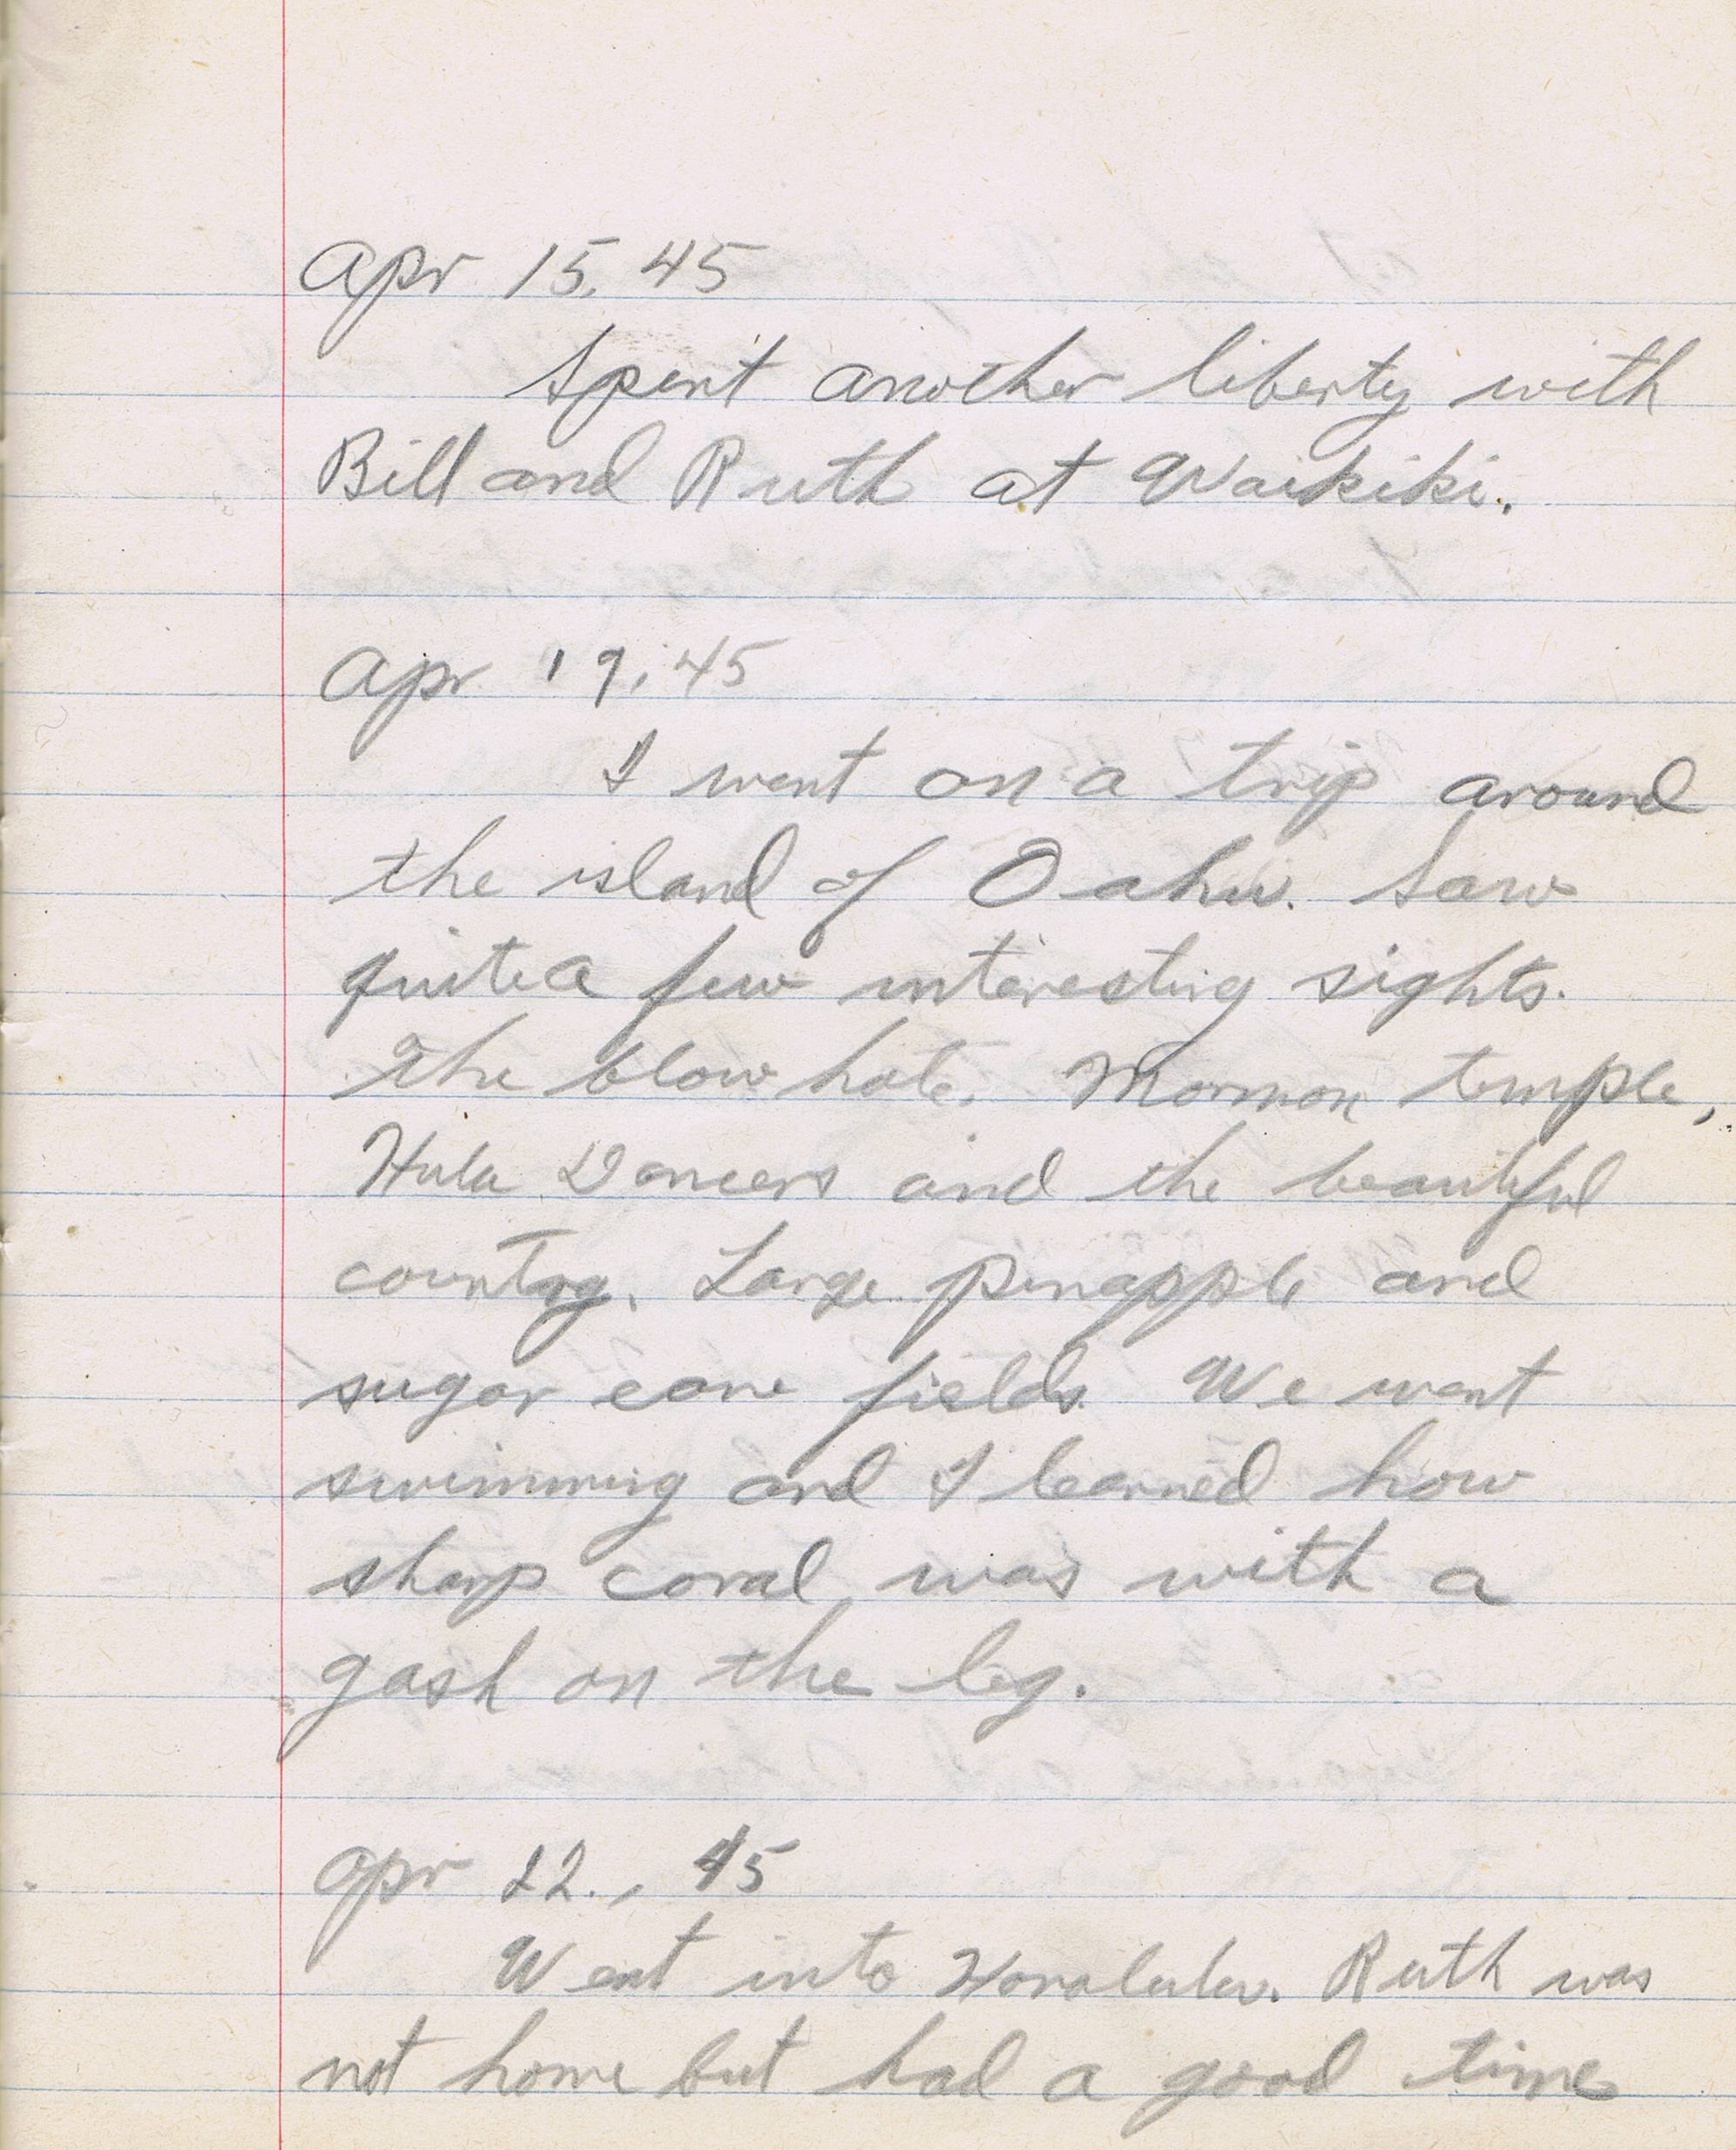 Apr 15, 45
Spent another liberty with
Bill and Ruth at Waikiki.
Apr 19, 45
I went on a trip around
the island of Oahu. Saw
quite a few interesting sights.
The blow hole, Mormon temple,
Hula Dancers and the beautiful
country. Large pinapple and
sugar cane fields. We went
swimming and I learned how
sharp coral was with a
gash on the leg.
Apr 22., 45
Went into Honolulu. Ruth was
not home but had a good time